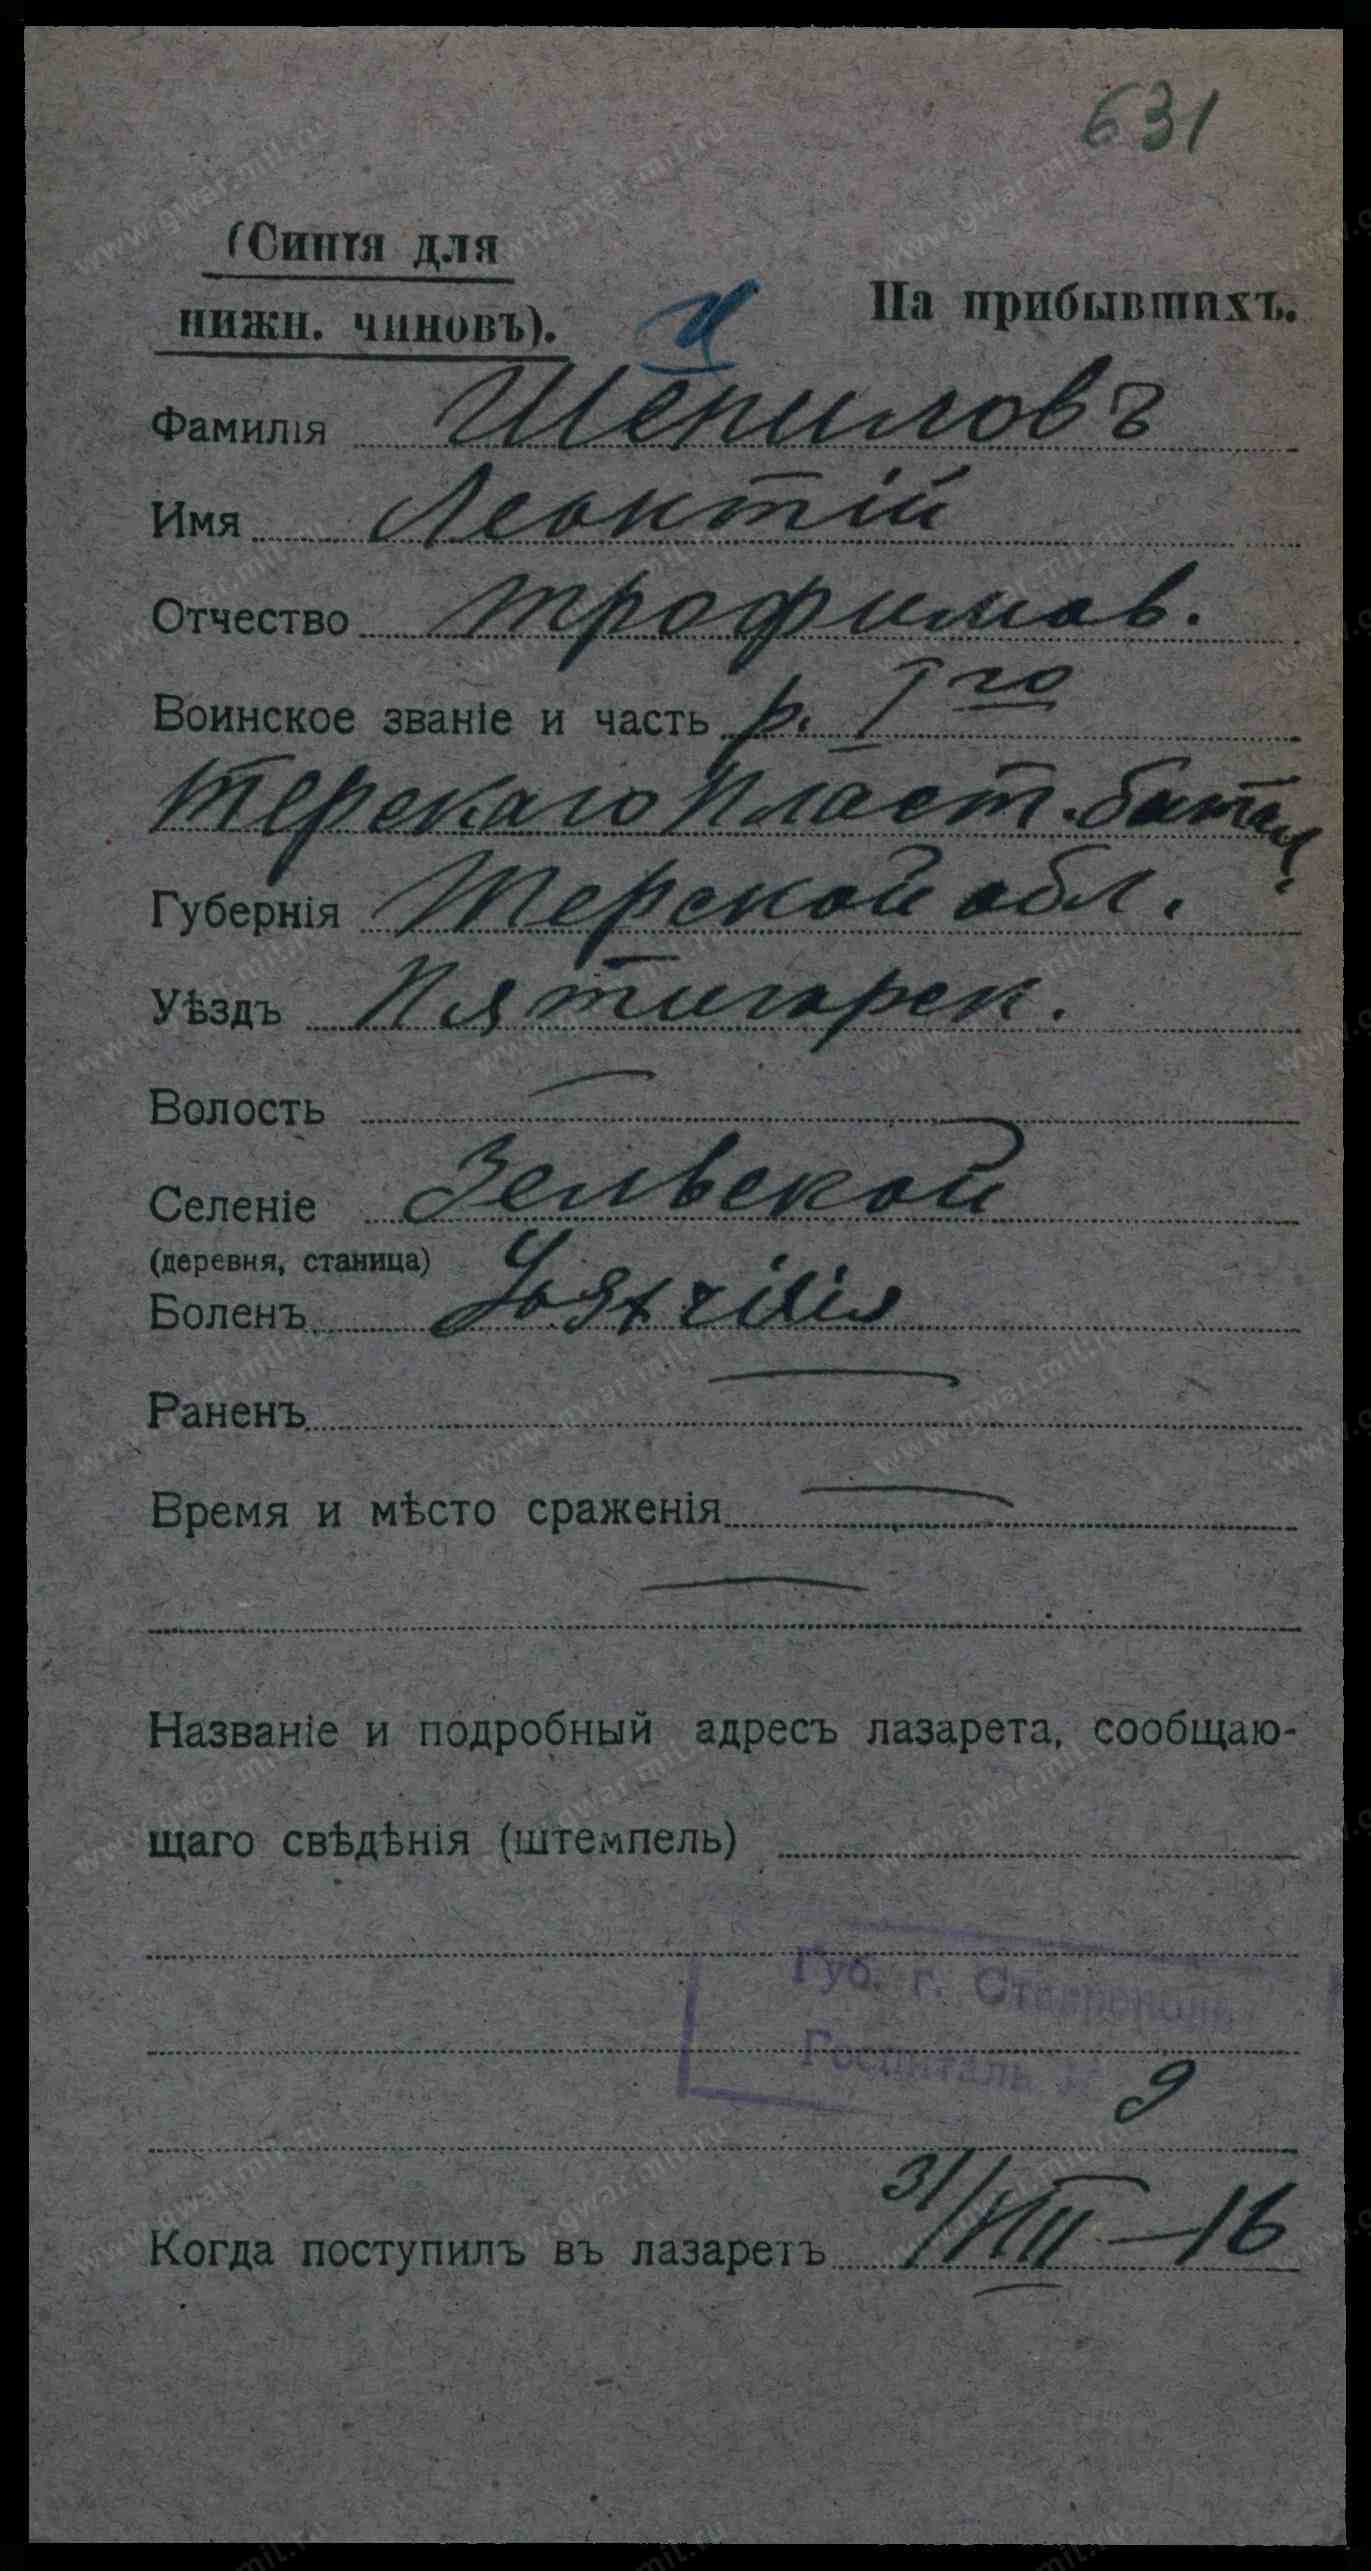 631
(Синія для
нижн. чиновъ).
На прибывшихъ.
Фамилія Шепиловъ
Имя Леонтій
Отчество Трофимов.
Воинское званіе и часть р. I го
Терскаго Пласт. батал.
Губернія Терской обл.
Уѣздъ Пятигорск.
Волость —
Селеніе
(деревня, станица)
Боленъ
Раненъ —
Время и мѣсто сраженія —
—
Названіе и подробный адресъ лазарета, сообщаю-
щаго свѣдѣнія (штемпель)
Губ. г. Ставрополь
Госпиталь № 9
Когда поступилъ въ лазаретъ 31/VIII—16
www.gwar.mil.ru